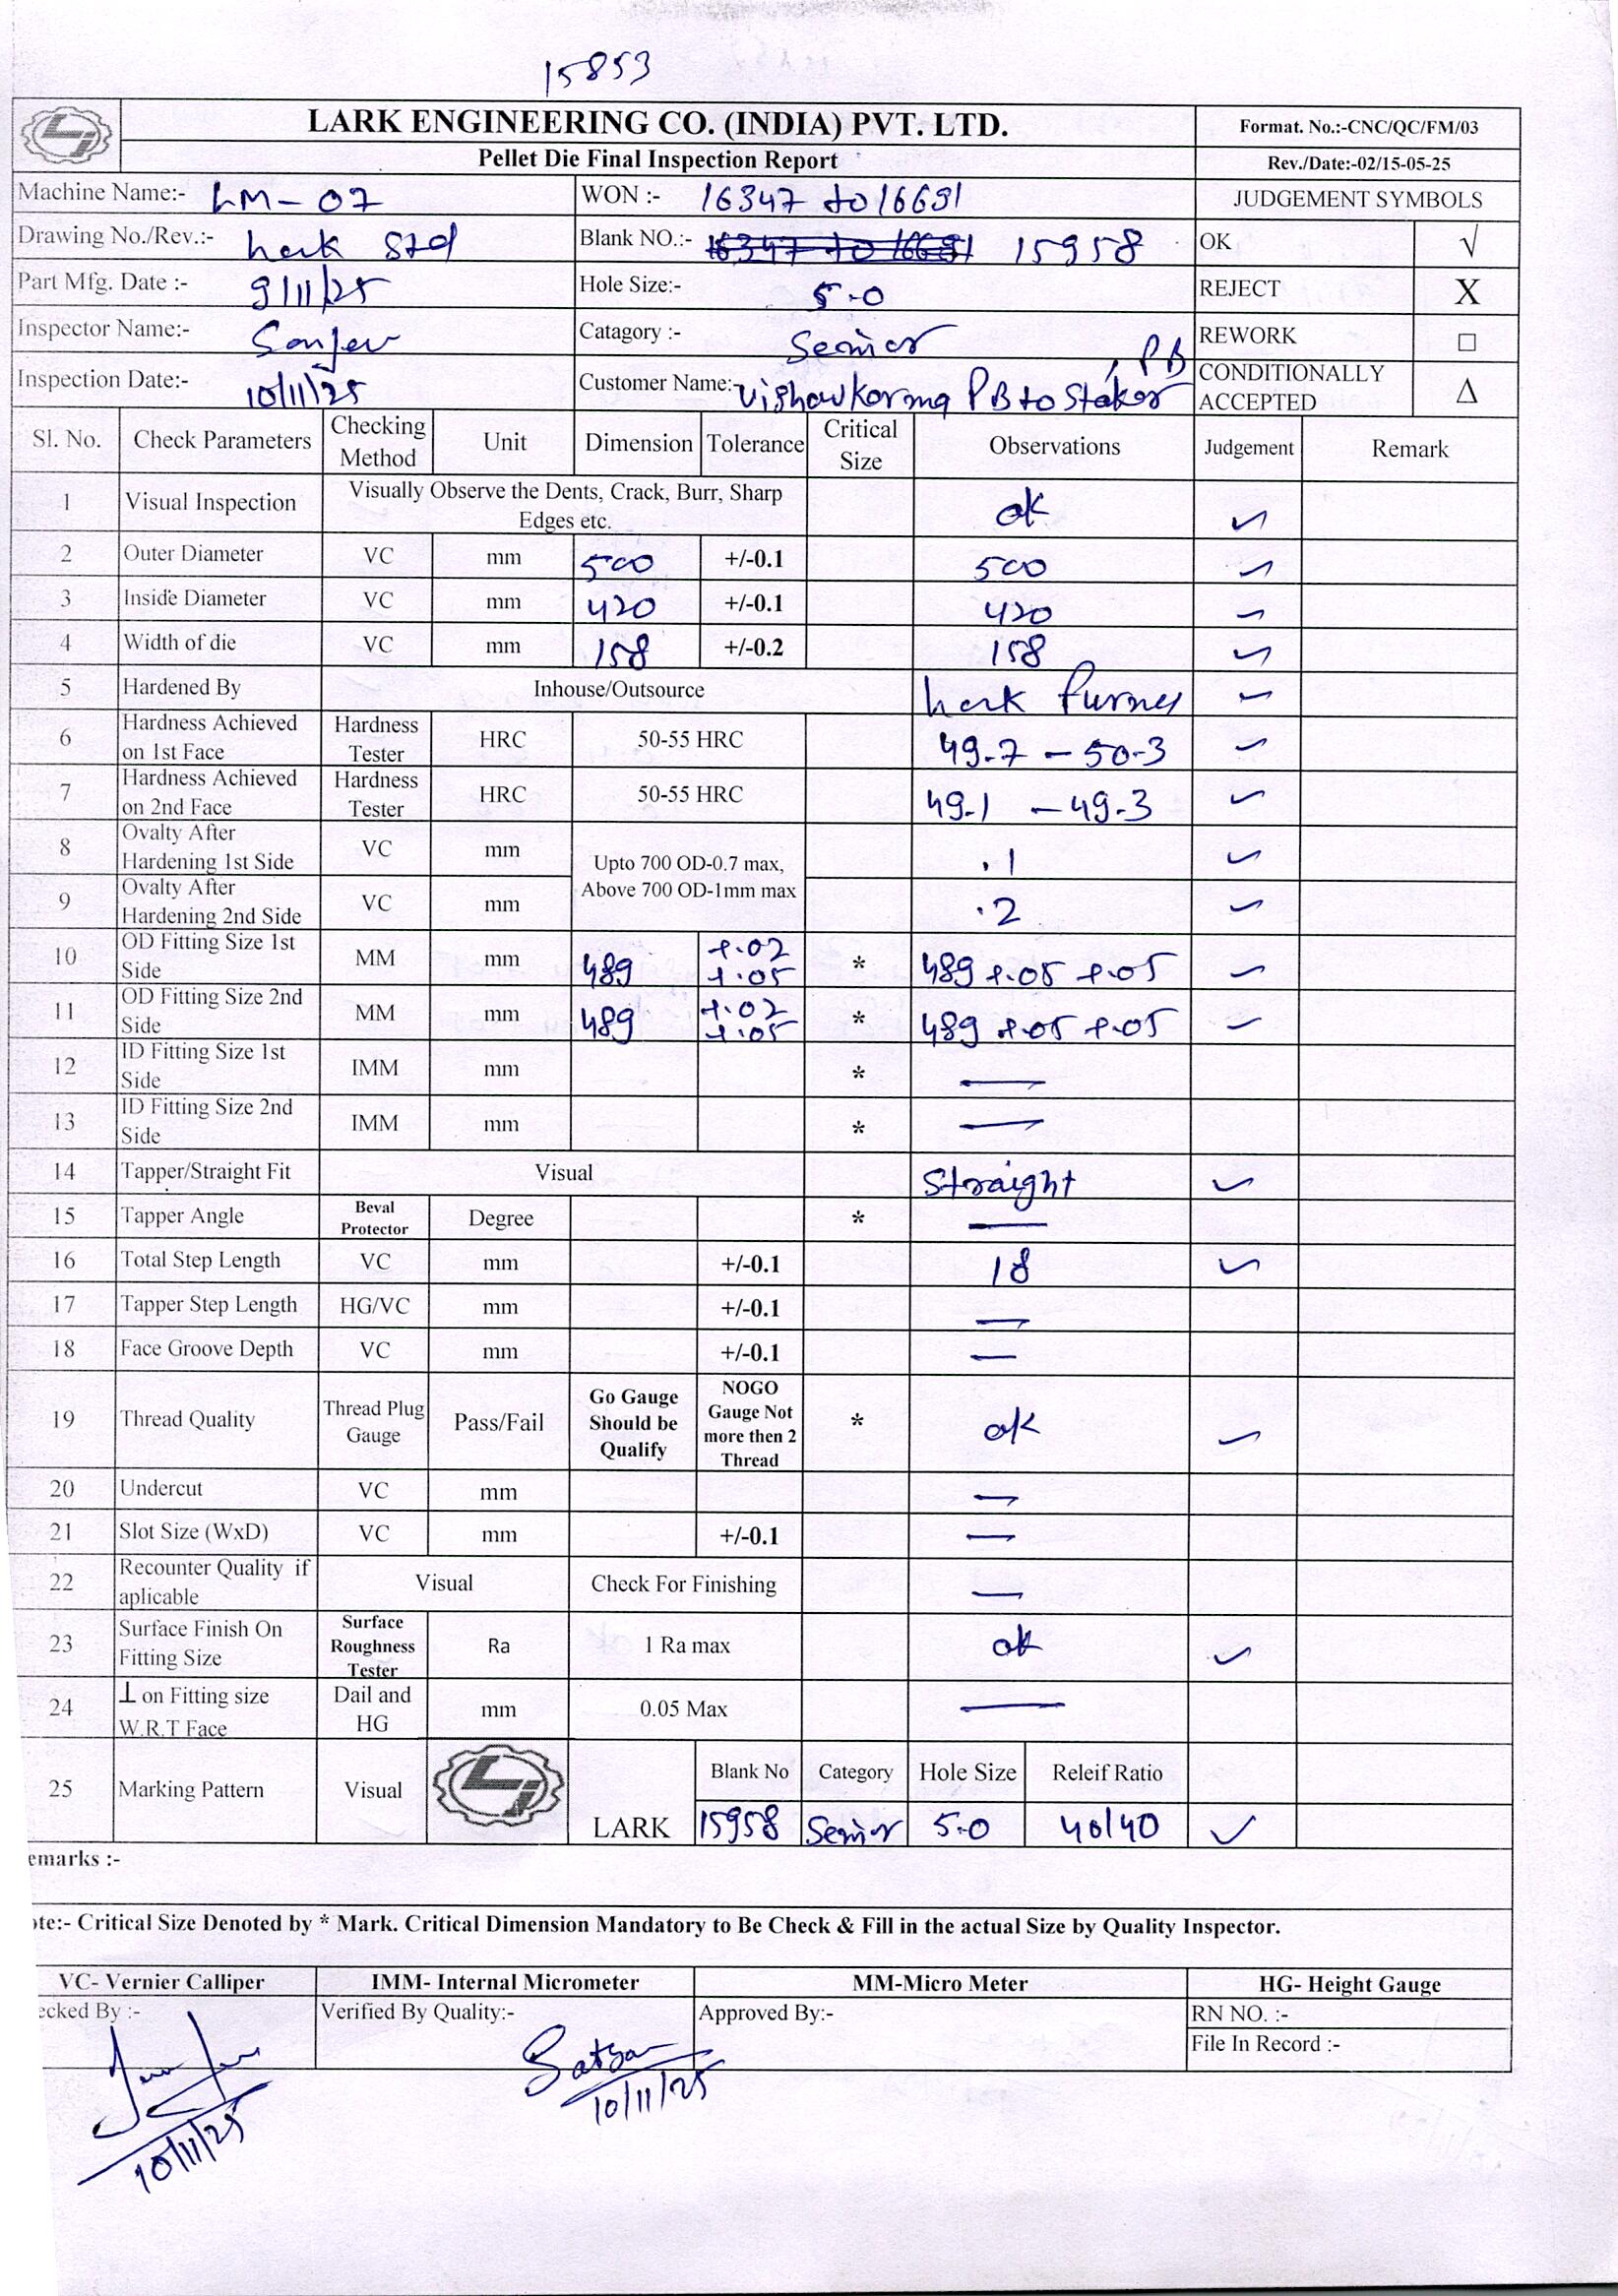 15853
LARK ENGINEERING CO. (INDIA) PVT. LTD.
Format. No.:-CNC/QC/FM/03
Pellet Die Final Inspection Report
Rev./Date:-02/15-05-25
Machine Name:- LM-07 WON :- 16347 to 16631 JUDGEMENT SYMBOLS
Drawing No./Rev.:- Lark Std Blank NO.:- 15958 OK √
Part Mfg. Date :- 9/11/25 Hole Size:- 5.0 REJECT X
Inspector Name:- Catagory :- Senior REWORK □
Inspection Date:- 10/11/25 Customer Name:- Vishawkarma PB to , PB CONDITIONALLY ACCEPTED Δ
Sl. No. Check Parameters Checking Method Unit Dimension Tolerance Critical Size Observations Judgement Remark
1 Visual Inspection Visually Observe the Dents, Crack, Burr, Sharp Edges etc. ok ✓
2 Outer Diameter VC mm 500 +/-0.1 500 ✓
3 Inside Diameter VC mm 420 +/-0.1 420 ✓
4 Width of die VC mm 158 +/-0.2 158 ✓
5 Hardened By Inhouse/Outsource Lark ✓
6 Hardness Achieved on 1st Face Hardness Tester HRC 50-55 HRC 49.7 - 50.3 ✓
7 Hardness Achieved on 2nd Face Hardness Tester HRC 50-55 HRC 49.1 - 49.3 ✓
8 Ovalty After Hardening 1st Side VC mm Upto 700 OD-0.7 max, Above 700 OD-1mm max .1 ✓
9 Ovalty After Hardening 2nd Side VC mm .2 ✓
10 OD Fitting Size 1st Side MM mm 489 +.02 +.05 * 489 +.05 +.05 ✓
11 OD Fitting Size 2nd Side MM mm 489 +.02 +.05 * 489 +.05 +.05 ✓
12 ID Fitting Size 1st Side IMM mm * —
13 ID Fitting Size 2nd Side IMM mm * —
14 Tapper/Straight Fit Visual Straight ✓
15 Tapper Angle Beval Protector Degree * —
16 Total Step Length VC mm +/-0.1 18 ✓
17 Tapper Step Length HG/VC mm +/-0.1 —
18 Face Groove Depth VC mm +/-0.1 —
19 Thread Quality Thread Plug Gauge Pass/Fail Go Gauge Should be Qualify NOGO Gauge Not more then 2 Thread * ok ✓
20 Undercut VC mm —
21 Slot Size (WxD) VC mm +/-0.1 —
22 Recounter Quality if aplicable Visual Check For Finishing —
23 Surface Finish On Fitting Size Surface Roughness Tester Ra 1 Ra max ok ✓
24 ⊥ on Fitting size W.R.T Face Dail and HG mm 0.05 Max —
25 Marking Pattern Visual LARK Blank No Category Hole Size Releif Ratio
15958 Senior 5.0 40/40 ✓
emarks :-
ote:- Critical Size Denoted by * Mark. Critical Dimension Mandatory to Be Check & Fill in the actual Size by Quality Inspector.
VC- Vernier Calliper IMM- Internal Micrometer MM-Micro Meter HG- Height Gauge
ecked By :- Verified By Quality:- Approved By:- RN NO. :-
File In Record :-
10/11/25
10/11/25